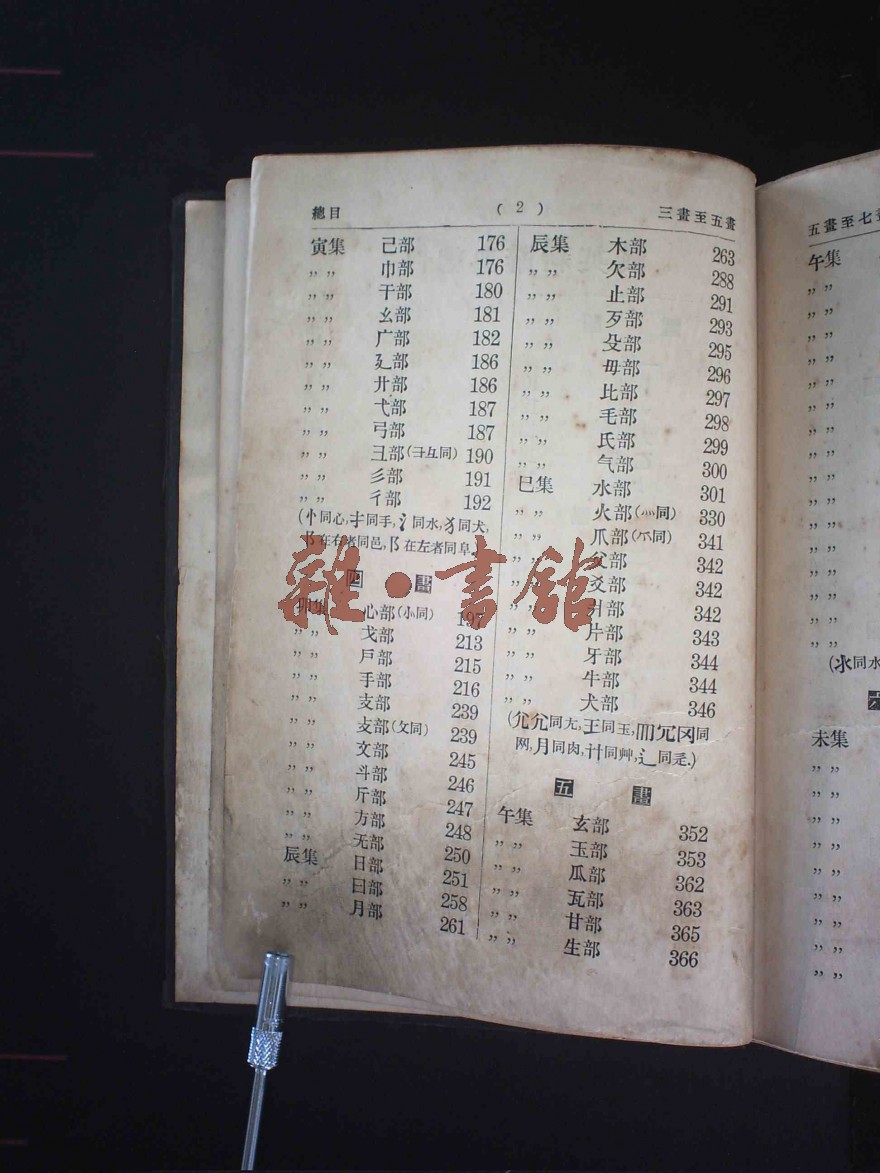 總目 ( 2 ) 三畫至五畫
寅集 己部 176
” ” 巾部 176
” ” 干部 180
” ” 幺部 181
” ” 广部 182
” ” 廴部 186
” ” 廾部 186
” ” 弋部 187
” ” 弓部 187
” ” 彐部(彐彑同) 190
” ” 彡部 191
” ” 彳部 192
(忄同心,扌同手,氵同水,犭同犬,
阝在右者同邑,阝在左者同阜.)
四 畫
卯集 心部(㣺同) 197
” ” 戈部 213
” ” 戶部 215
” ” 手部 216
” ” 支部 239
” ” 攴部(攵同) 239
” ” 文部 245
” ” 斗部 246
” ” 斤部 247
” ” 方部 248
” ” 无部 250
辰集 日部 251
” ” 曰部 258
” ” 月部 261
辰集 木部 263
” ” 欠部 288
” ” 止部 291
” ” 歹部 293
” ” 殳部 295
” ” 毋部 296
” ” 比部 297
” ” 毛部 298
” ” 氏部 299
” ” 气部 300
巳集 水部 301
” ” 火部(灬同) 330
” ” 爪部(爫同) 341
” ” 父部 342
” ” 爻部 342
” ” 爿部 342
” ” 片部 343
” ” 牙部 344
” ” 牛部 344
” ” 犬部 346
同尢,王同玉,
网,月同肉,艹同艸,辶同辵.)
五 畫
午集 玄部 352
” ” 玉部 353
” ” 瓜部 362
” ” 瓦部 363
” ” 甘部 365
” ” 生部 366
五畫至七畫
午集
” ”
(氺同水
六
未集
” ”
雜·書館